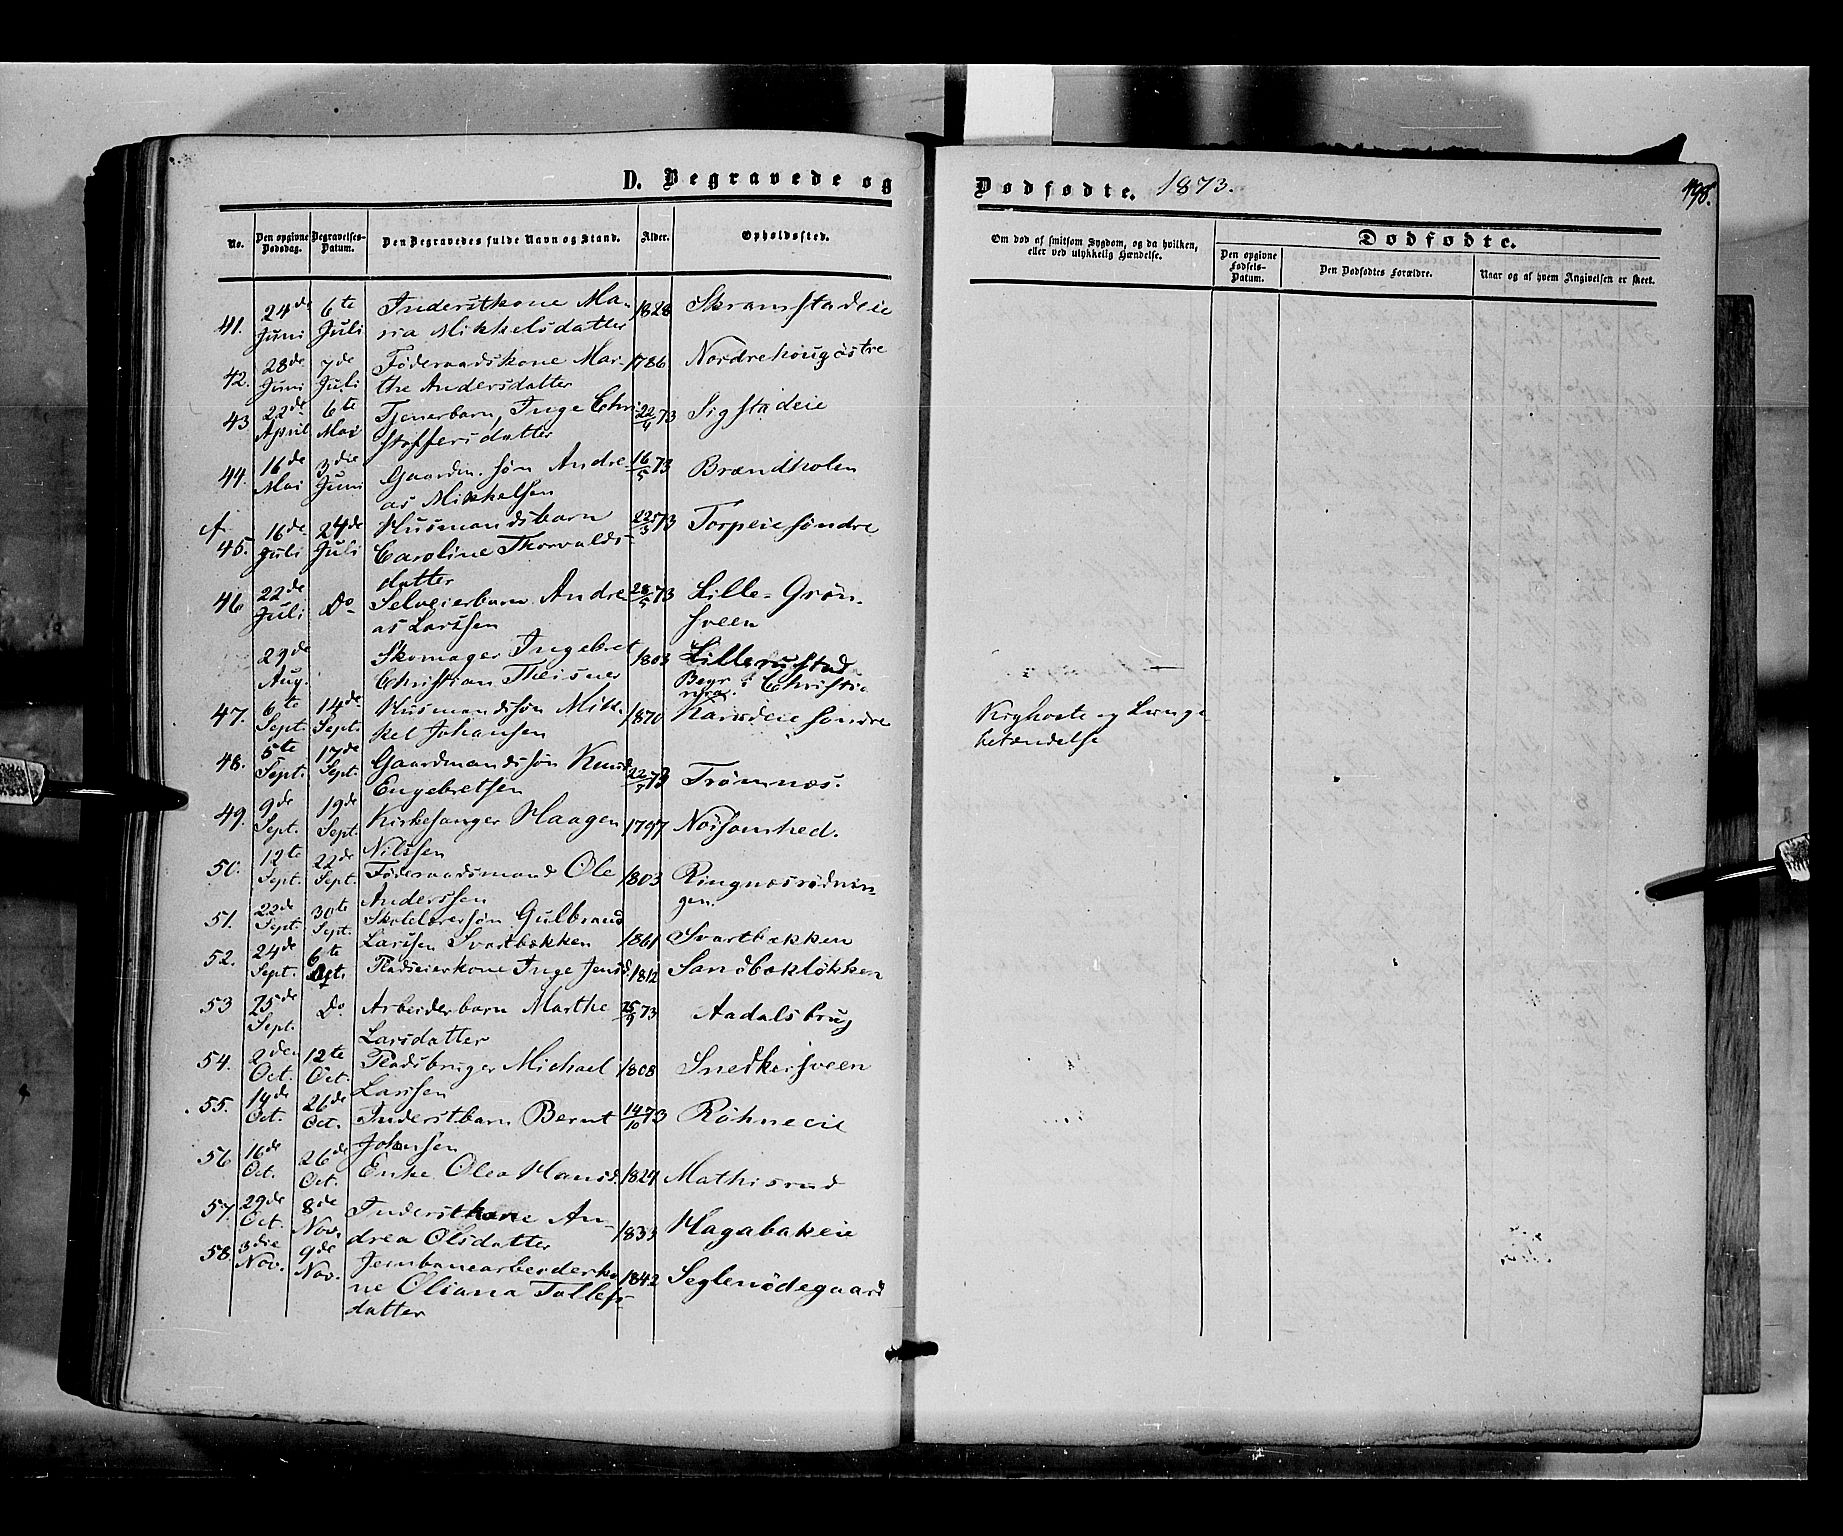 D. Begravede og
Dødfødte. 1873.
198.
No.
Den opgivne Dødsdag.
Begravelses-Datum.
Den Begravedes fulde Navn og Stand.
Alder.
Opholdssted.
Om død af smitsom Sygdom, og da hvilken,
eller ved ulykkelig Hændelse.
Dødfødte.
Den opgivne Fødsels-Datum.
Den Dødfødtes Forældre.
Naar og af hvem Angivelsen er skeet.
41. 24de Juni 6te Juli Inderstkone Ma-
ria Mikkelsdatter 1828 Skramstadeie
42. 28de Juni 7de Juli Føderaadskone Mar-
the Andersdatter 1786 Nordrehougøstre
43 22de April 6te Mai Tjenerbarn, Inge Chri
stoffersdatter 22/4 73 Sigstadeie
44. 16de Mai 3die Juni Gaardm. søn Andre
as Mikkelsen 16/5 73 Brændholen
45. 16de Juli 24de Juli Husmandsbarn
Caroline Thorvalds-
datter 22/3 73 Torpeie søndre
46 22de Juli Do Selveierbarn Andre
as Larssen 28/5 73 Lille-Grøn-
sveen
29de Aug. Skomager Ingebret
Christian Theisner 1803 Lillerustad
Begr. i Christia
nia.
47. 6te Sept. 14de Sept. Husmandssøn Mik-
kel Johansen 1870 Karsdeie søndre
Kighoste og Lunge
betændelse
48. 5te Sept. 17de Sept. Gaardmandssøn Knud
Engebretsen 22/7 73 Trømnæs.
49. 9de Sept. 19de Sept. Kirkesanger Haagen
Nilssen 1797 Nøisomhed.
50. 12te Sept. 22de Sept. Føderaadsmand Ole
Anderssen 1803 Ringnæsrødnin-
gen.
51. 22de Sept. 30te Sept. Skolelærersøn Gulbrand
Larssen Svartbækken 1861 Svartbækken
52. 24de Sept. 6te Oct. Pladseierkone Inge Jensd. 1812 Sandbækløkken
53 25de Sept. Do. Arbeiderbarn Marthe
Larsdatter 25/9 73 Aadalsbrug
54. 2den Oct. 12te Oct. Pladsbruger Michael
Larssen 1808 Snedkersveen
55. 14de Oct. 26de Oct. Inderstbarn Bernt
Johnsen 14/10 73 Røhneeie
56 16de Oct. 26de Oct. Enke Olea Hansd. 1824 Mathisrud
57. 29de Oct. 8de Nov. Inderstkone An-
drea Olsdatter 1833 Hagabakeie
58. 3die Nov. 9de Nov. Jernbanearbeiderko
ne Oliana Tollefs-
datter 1842 Seglenødegaard